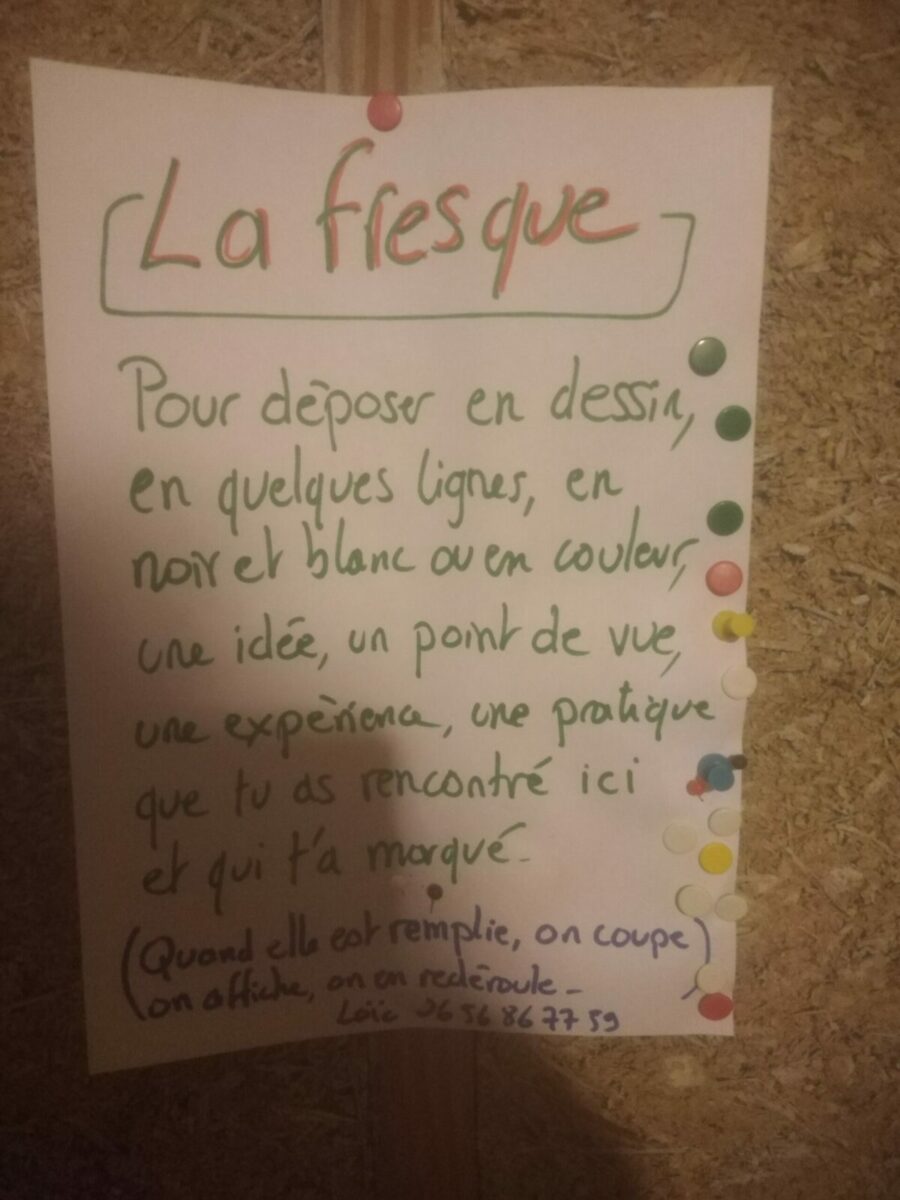 La fresque
Pour déposer en dessin,
en quelques lignes, en
noir et blanc ou en couleur,
une idée, un point de vue,
une expèrience, une pratique
que tu as rencontré ici
et qui t'a marqué-
(Quand elle est remplie, on coupe)
on affiche, on en redéroule-
Loïc 06 56 86 77 59